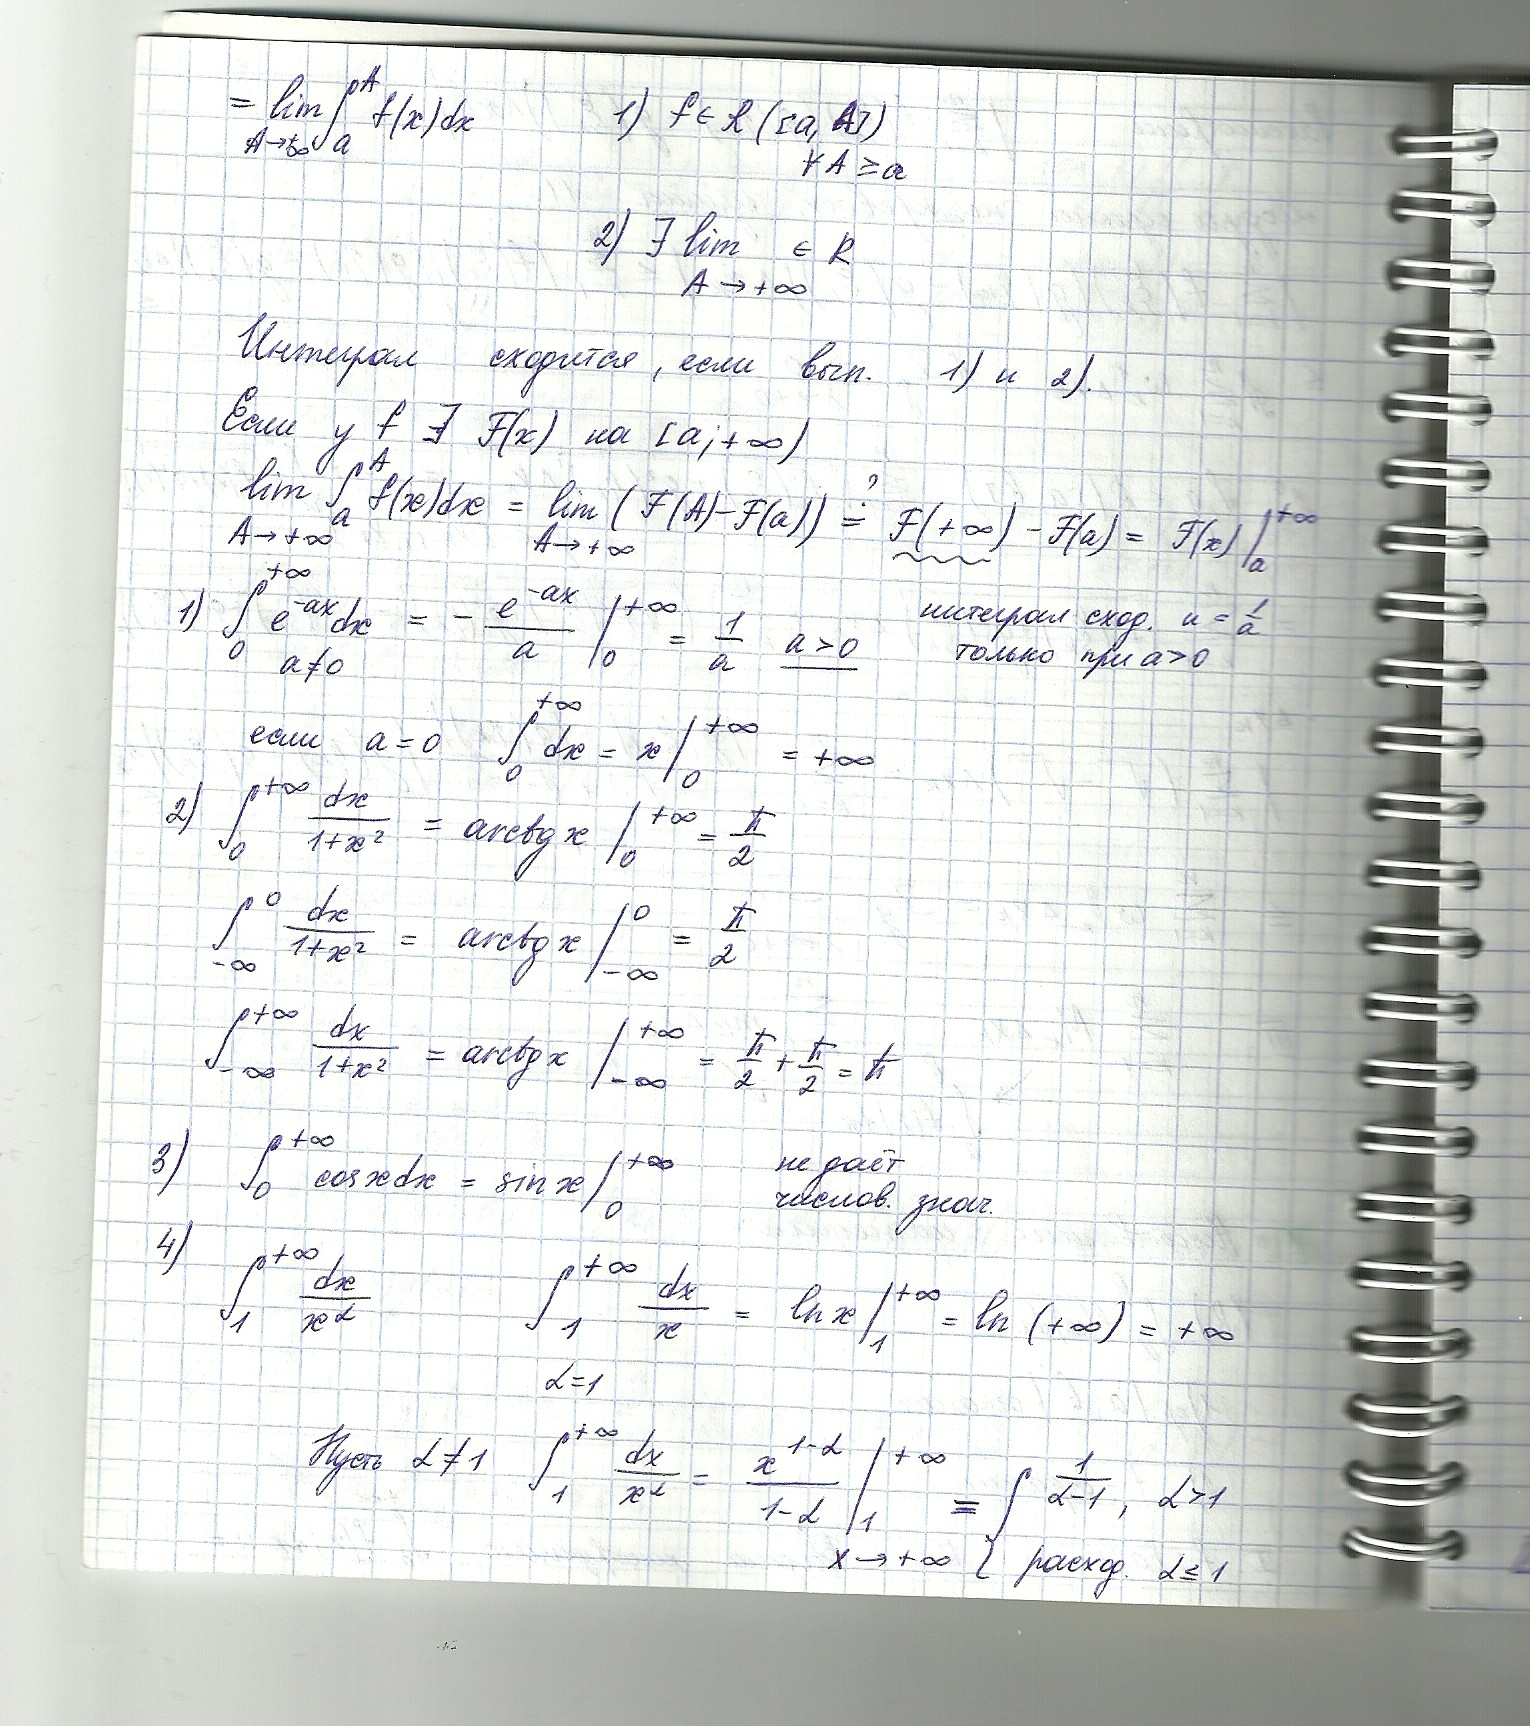 = lim_{A→+∞} ∫_a^A f(x)dx 1) f ∈ R([a, A])
∀A ≥ a
2) ∃ lim_{A→+∞} ∈ R
Интеграл сходится, если вып. 1) и 2).
Если у f ∃ F(x) на [a;+∞)
lim_{A→+∞} ∫_a^A f(x)dx = lim_{A→+∞} (F(A)-F(a)) =^? F(+∞) - F(a) = F(x) |_a^{+∞}
1) ∫_0^{+∞} e^{-ax}dx = - e^{-ax}/a |_0^{+∞} = 1/a a>0 интеграл сход. и = 1/a
a≠0 только при a>0
если a=0 ∫_0^{+∞} dx = x |_0^{+∞} = +∞
2) ∫_0^{+∞} dx/(1+x²) = arctg x |_0^{+∞} = π/2
∫_{-∞}^0 dx/(1+x²) = arctg x |_{-∞}^0 = π/2
∫_{-∞}^{+∞} dx/(1+x²) = arctg x |_{-∞}^{+∞} = π/2 + π/2 = π
3) ∫_0^{+∞} cosxdx = sinx |_0^{+∞} не даёт
числов. знач.
4) ∫_1^{+∞} dx/x^α ∫_1^{+∞} dx/x = ln x |_1^{+∞} = ln (+∞) = +∞
α=1
Пусть α≠1 ∫_1^{+∞} dx/x^α = x^{1-α}/(1-α) |_1^{+∞} = { 1/(α-1), α>1
x→+∞ { расход. α≤1